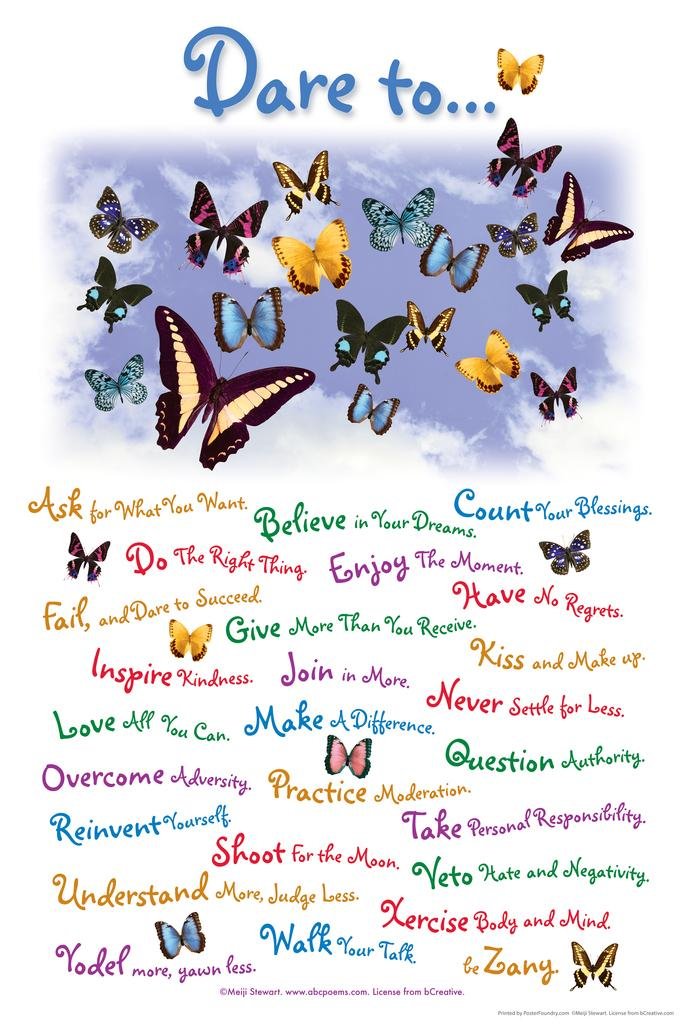 Dare to...
Ask for What You Want.
Believe in Your Dreams.
Count Your Blessings.
Do The Right Thing.
Enjoy The Moment.
Fail, and Dare to Succeed.
Give More Than You Receive.
Have No Regrets.
Inspire Kindness.
Join in More.
Kiss and Make up.
Love All You Can.
Make A Difference.
Never Settle for Less.
Overcome Adversity.
Practice Moderation.
Question Authority.
Reinvent Yourself.
Shoot For the Moon.
Take Personal Responsibility.
Understand More, Judge Less.
Veto Hate and Negativity.
Walk Your Talk.
Xercise Body and Mind.
Yodel more, yawn less.
be Zany.
©Meiji Stewart. www.abcpoems.com. License from bCreative.
Printed by PosterFoundry.com ©Meiji Stewart. License from bCreative.com